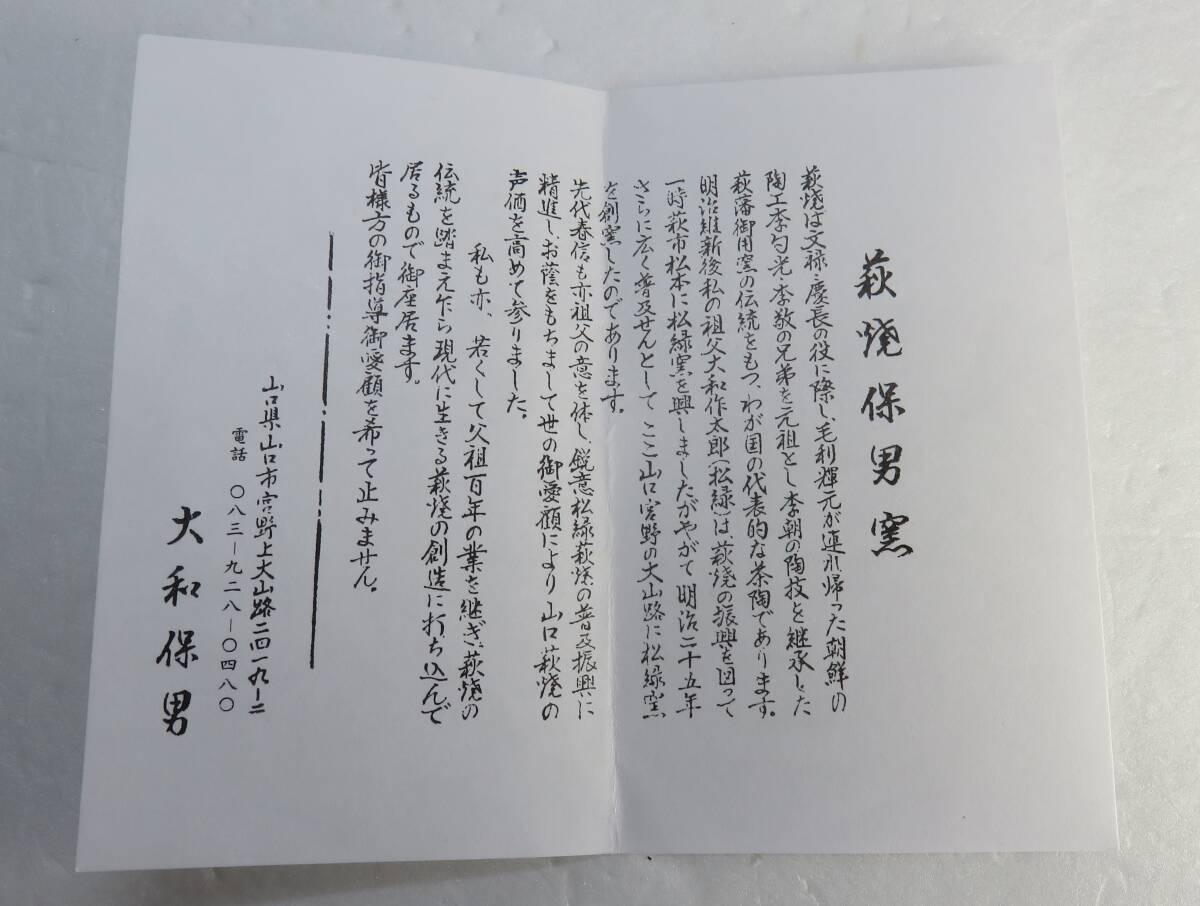 萩焼保男窯
萩焼は文禄・慶長の役に際し、毛利輝元が連れ帰った朝鮮の
陶工李勺光・李敬の兄弟を元祖とし李朝の陶技を継承した
萩藩御用窯の伝統をもつ、わが国の代表的な茶陶であります。
明治維新後私の祖父大和作太郎(松緑)は、萩焼の振興を図って
一時萩市松本に松緑窯を興しましたがやがて明治二十五年
さらに広く普及せんとしてここ山口宮野の大山路に松緑窯
を創窯したのであります。
先代春信も亦祖父の意を体し、鋭意松緑萩焼の普及振興に
精進し、お蔭をもちまして世の御愛顧により山口萩焼の
声価を高めて参りました。
私も亦、若くして父祖百年の業を継ぎ、萩焼の
伝統を踏まえ乍ら現代に生きる萩焼の創造に打ち込んで
居るもので御座居ます。
皆様方の御指導御愛顧を希って止みません。
山口県山口市宮野上大山路二四一九-二
電話 〇八三-九二八-〇四八〇
大和保男